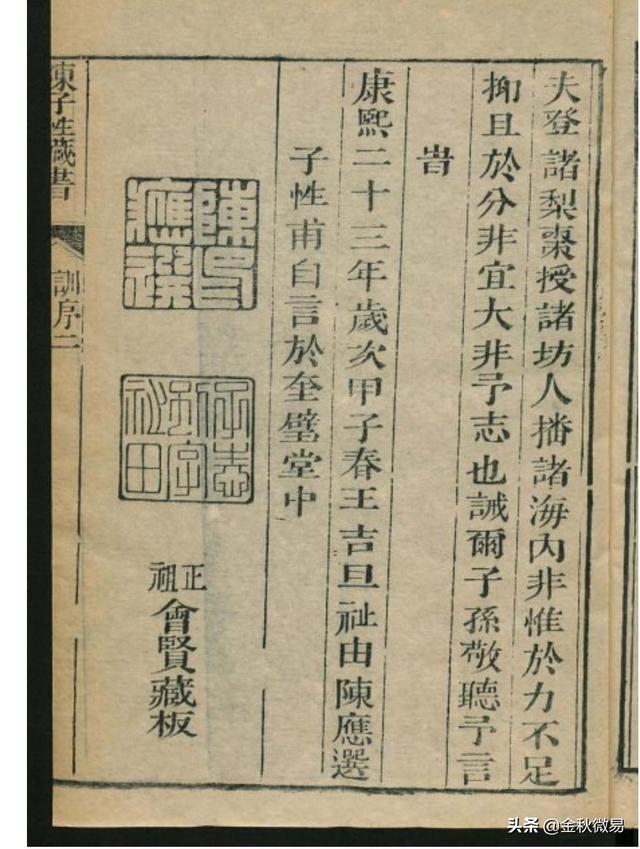 夫登諸梨棗授諸坊人播諸海內非惟於力不足
抑且於分非宜大非予志也誡爾子孫敬聽予言
旹
康熙二十三年歲次甲子春王吉旦祉由陳應選
子性甫自言於奎璧堂中
陳印應選
正祖
會賢藏板
陳子性藏書
訓序二
头条 @金秋微易